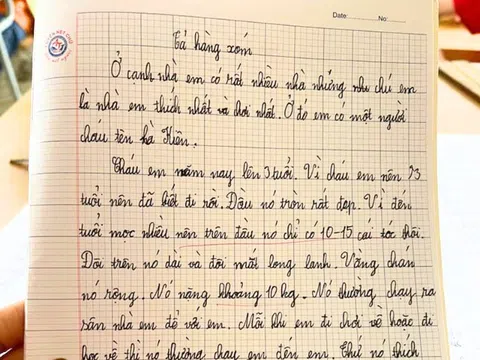 Date: No:
Tả hàng xóm
Ở cạnh nhà em có rất nhiều nhà nhưng nhà chú em
là nhà em thích nhất và chơi nhất. Ở đó em có một người
cháu tên là Hiên.
Cháu em năm nay lên 3 tuổi. Vì cháu em nên 3
tuổi nên đã biết đi rồi. Đầu nó tròn rất đẹp. Vì đến
tuổi mọc nhiều nên trên đầu nó chỉ có 10-15 cái tóc thôi.
Dôi trên nó dài và đôi mắt long lanh. Vầng chán
nó rộng. Nó nặng khoảng 10 kg. Nó thường chạy ra
sân nhà em để với em. Mỗi khi em đi chơi về hoặc đi
học về thì nó thường chạy em đến em. Thứ nó thích